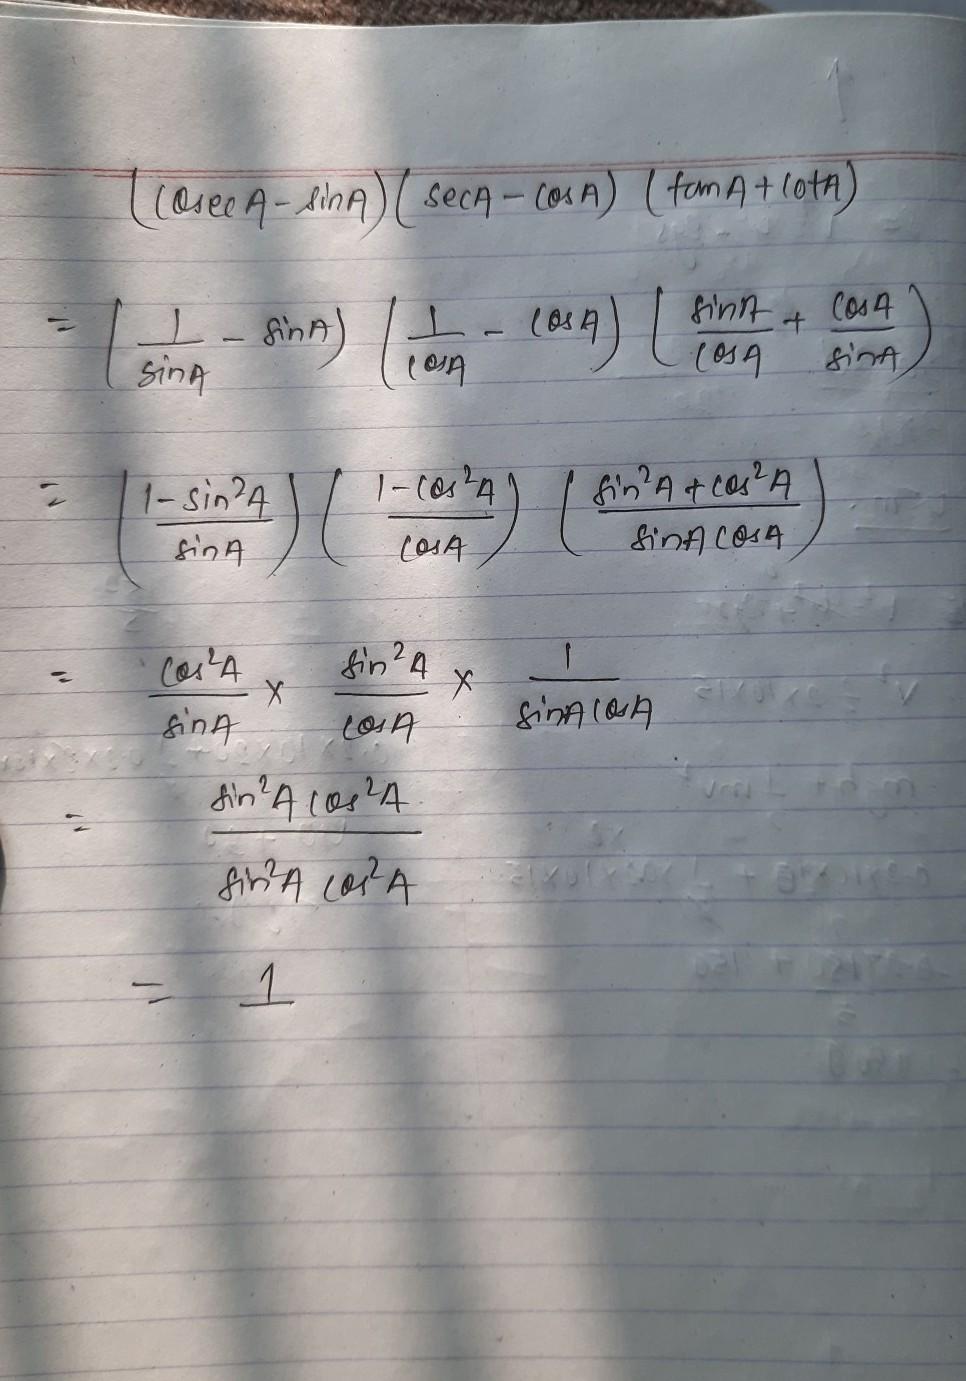 1
(cosec A - sin A) (sec A - cos A) (tan A + cot A)
= (1/sin A - sin A) (1/cos A - cos A) (sin A/cos A + cos A/sin A)
= ((1 - sin²A)/sin A) ((1 - cos²A)/cos A) ((sin²A + cos²A)/(sin A cos A))
= cos²A/sin A × sin²A/cos A × 1/(sin A cos A)
= (sin²A cos²A)/(sin²A cos²A)
= 1